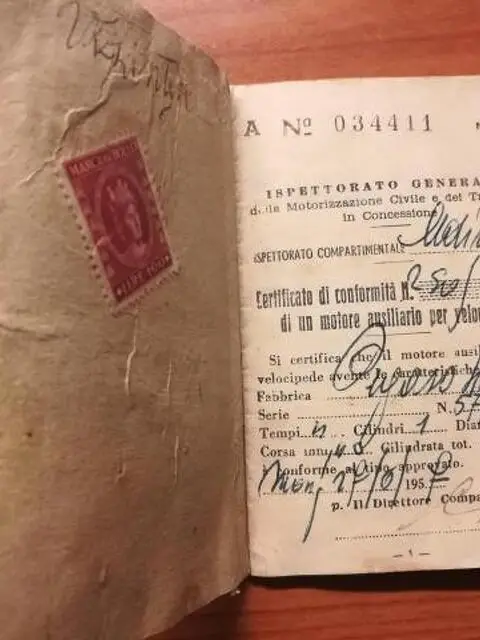 MARCA DA BOLLO
LIRE 100
A Nº 034411
ISPETTORATO GENERA
della Motorizzazione Civile e dei Tr
in Concessione
ISPETTORATO COMPARTIMENTALE
Certificato di conformità N. 250/
di un motore ausiliario per velo
Si certifica che il motore ausi
velocipede avente le caratteristiche
Fabbrica
Serie N. 57
Tempi Cilindri 1 Dia
Corsa mm. 40 Cilindrata tot.
è conforme al tipo approvato.
27/6/1957
p. Il Direttore Compa
— 1 —